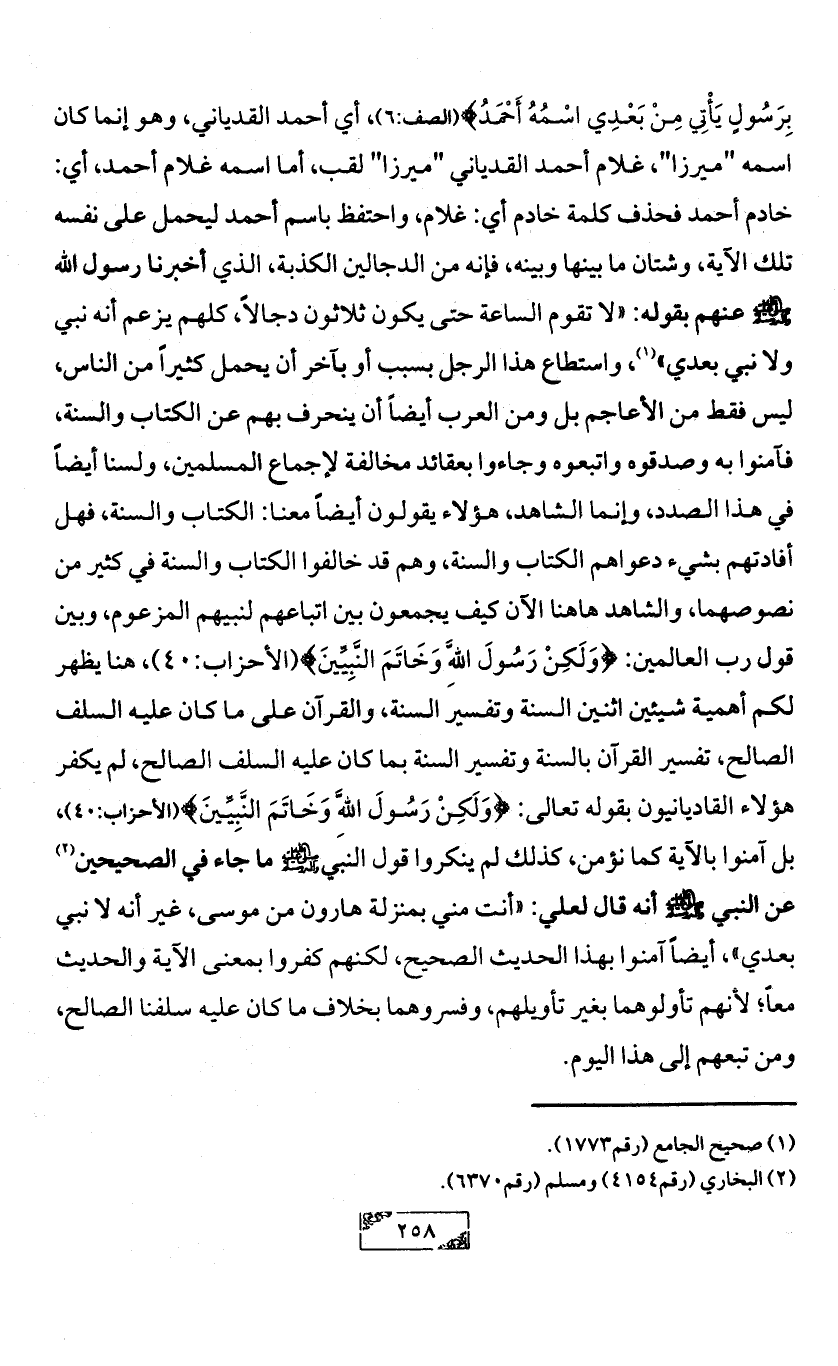 بِرَسُولٍ يَأْتِي مِنْ بَعْدِي اسْمُهُ أَحْمَدُ﴾(الصف:٦)، أي أحمد القدياني، وهو إنما كان
اسمه "ميرزا"، غلام أحمد القدياني "ميرزا" لقب، أما اسمه غلام أحمد، أي:
خادم أحمد فحذف كلمة خادم أي: غلام، واحتفظ باسم أحمد ليحمل على نفسه
تلك الآية، وشتان ما بينها وبينه، فإنه من الدجالين الكذبة، الذي أخبرنا رسول الله
ﷺ عنهم بقوله: «لا تقوم الساعة حتى يكون ثلاثون دجالاً، كلهم يزعم أنه نبي
ولا نبي بعدي»(١)، واستطاع هذا الرجل بسبب أو بآخر أن يحمل كثيراً من الناس،
ليس فقط من الأعاجم بل ومن العرب أيضاً أن ينحرف بهم عن الكتاب والسنة،
فآمنوا به وصدقوه واتبعوه وجاءوا بعقائد مخالفة لإجماع المسلمين، ولسنا أيضاً
في هذا الصدد، وإنما الشاهد، هؤلاء يقولون أيضاً معنا: الكتاب والسنة، فهل
أفادتهم بشيء دعواهم الكتاب والسنة، وهم قد خالفوا الكتاب والسنة في كثير من
نصوصهما، والشاهد هاهنا الآن كيف يجمعون بين اتباعهم لنبيهم المزعوم، وبين
قول رب العالمين: ﴿وَلَكِنْ رَسُولَ اللَّهِ وَخَاتَمَ النَّبِيِّينَ﴾(الأحزاب:٤٠)، هنا يظهر
لكم أهمية شيئين اثنين السنة وتفسير السنة، والقرآن على ما كان عليه السلف
الصالح، تفسير القرآن بالسنة وتفسير السنة بما كان عليه السلف الصالح، لم يكفر
هؤلاء القاديانيون بقوله تعالى: ﴿وَلَكِنْ رَسُولَ اللَّهِ وَخَاتَمَ النَّبِيِّينَ﴾(الأحزاب:٤٠)،
بل آمنوا بالآية كما نؤمن، كذلك لم ينكروا قول النبي ﷺ ما جاء في الصحيحين(٢)
عن النبي ﷺ أنه قال لعلي: «أنت مني بمنزلة هارون من موسى، غير أنه لا نبي
بعدي»، أيضاً آمنوا بهذا الحديث الصحيح، لكنهم كفروا بمعنى الآية والحديث
معاً؛ لأنهم تأولوهما بغير تأويلهم، وفسروهما بخلاف ما كان عليه سلفنا الصالح،
ومن تبعهم إلى هذا اليوم.
(١) صحيح الجامع (رقم١٧٧٣).
(٢) البخاري (رقم٤١٥٤) ومسلم (رقم٦٣٧٠).
٢٥٨